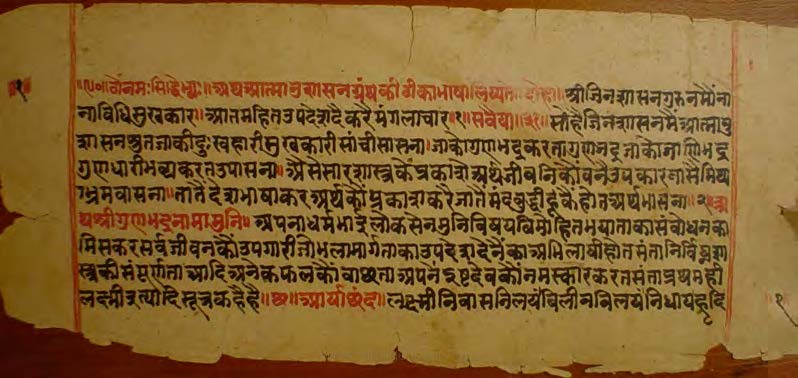 ॥ॐनमःसिद्धेभ्यः॥अथआत्मानुशासनग्रंथकीटीकाभाषालिख्यते॥दोहा॥श्रीजिनशासनगुरुनमौंना
नाविधिसुखकार॥आतमहितउपदेशदैकरैमंगलाचार॥१॥सवैया॥३१॥सोहैजिनशासनमैंआत्मानु
शासनश्रुतजाकीदुःखहारीसुखकारीसांचीसासना॥जाकोगुणभद्रकरतागुणभद्रजाकोजाणिभद्र
गुणधारीभव्यकरतउपासना॥औसेसारशास्त्रकोंप्रकाशैअर्थजीवनिकोंवनैउपकारनासैमिथ्या
भ्रमवासना॥तातैंदेशभाषाकरअर्थकोंप्रकाशकरैजातैंमंदबुद्धीहूकैंहोतअर्थभासना॥२॥अ
थश्रीगुणभद्रनामामुनि॥अपनाधर्मभाईलोकसेनमुनिविषयविमोहितभयाताकासंबोधनका
मिसकरसर्वजीवनकोंउपगारीजोभलामार्गताकाउपदेशदेनेंकाअभिलाषीहोतसंतानिर्विघ्नशा
स्त्रकीसंपूर्णताआदिअनेकफलकोंवांछताअपनेइष्टदेवकोंनमस्कारकरतसंताप्रथमही
लक्ष्मीइत्यादिसूत्रकहैहै॥छ॥आर्याछंदः॥लक्ष्मीनिवासनिलयंविलीनविलयंनिधायहृदि
१